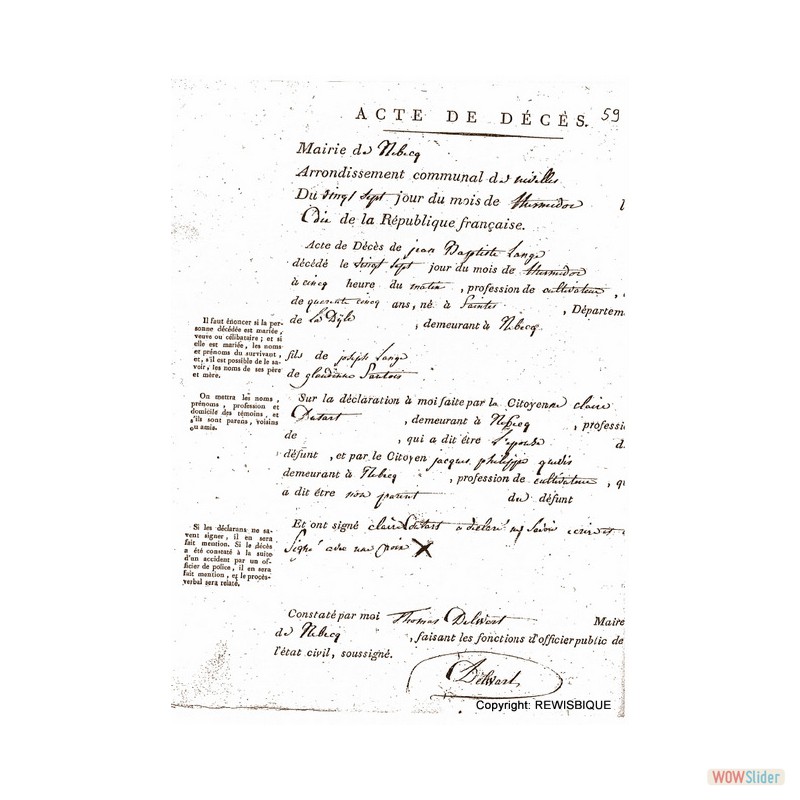 ACTE DE DÉCÈS. 59
Mairie de Rebecq
Arrondissement communal de nivelles
Du vingt sept jour du mois de thermidor l
de la République française.
Acte de Décès de jean Baptiste Lange
décédé le vingt sept jour du mois de thermidor
à cinq heure du matin , profession de cultivateur ,
de quarente cinq ans, né à Saintes , Départem
de La Dÿle , demeurant à Rebecq
fils de joseph Lange
de glaudinne Santois
Sur la déclaration à moi faite par la Citoyenne claire
Dutart , demeurant à Rebecq , professi
de , qui a dit être l'epouse d
défunt , et par le Citoyen jacques philippe
demeurant à Rebecq , profession de cultivateur , qu
a dit être non parent du défunt
Et ont signé claire Dutart a déclaré ny savoir ecrire et
Signé avec une croix X
Constaté par moi Thomas Delwart Maire
de Rebecq , faisant les fonctions d'officier public de
l'état civil, soussigné.
Delwart
Il faut énoncer si la per-
sonne décédée est mariée,
veuve ou célibataire ; et si
elle est mariée, les noms
et prénoms du survivant,
et, s'il est possible de le sa-
voir, les noms de ses père
et mère.
On mettra les noms,
prénoms, profession et
domicile des témoins, et
s'ils sont parens, voisins
ou amis.
Si les déclarans ne sa-
vent signer, il en sera
fait mention. Si le décès
a été constaté à la suite
d'un accident par un of-
ficier de police, il en sera
fait mention, et le procès-
verbal sera relaté.
Copyright: REWISBIQUE
WOWSlider